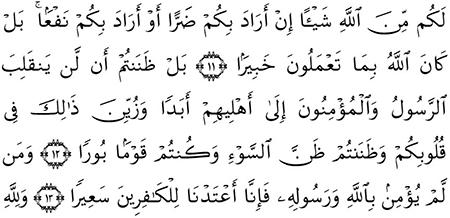 لَكُم مِّنَ ٱللَّهِ شَيْـًٔا إِنْ أَرَادَ بِكُمْ ضَرًّا أَوْ أَرَادَ بِكُمْ نَفْعَۢا ۚ بَلْ
كَانَ ٱللَّهُ بِمَا تَعْمَلُونَ خَبِيرًۢا ﴿١١﴾ بَلْ ظَنَنتُمْ أَن لَّن يَنقَلِبَ
ٱلرَّسُولُ وَٱلْمُؤْمِنُونَ إِلَىٰٓ أَهْلِيهِمْ أَبَدًا وَزُيِّنَ ذَٰلِكَ فِى
قُلُوبِكُمْ وَظَنَنتُمْ ظَنَّ ٱلسَّوْءِ وَكُنتُمْ قَوْمًۢا بُورًا ﴿١٢﴾ وَمَن
لَّمْ يُؤْمِنۢ بِٱللَّهِ وَرَسُولِهِۦ فَإِنَّآ أَعْتَدْنَا لِلْكَٰفِرِينَ سَعِيرًا ﴿١٣﴾ وَلِلَّهِ